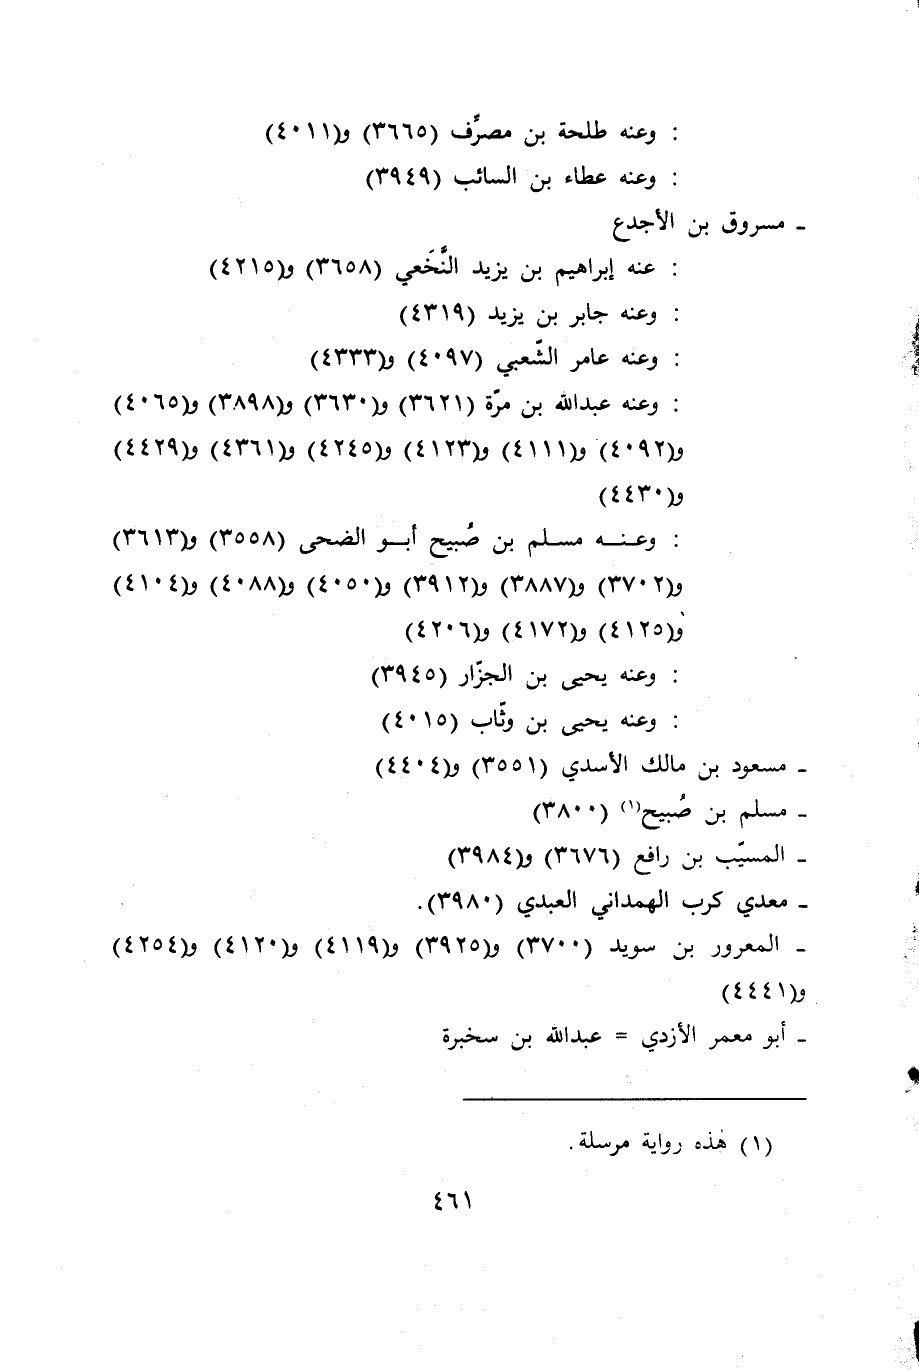 : وعنه طلحة بن مصرَّف (٣٦٦٥) و(٤٠١١)
: وعنه عطاء بن السائب (٣٩٤٩)
ـ مسروق بن الأجدع
: عنه إبراهيم بن يزيد النَّخَعي (٣٦٥٨) و(٤٢١٥)
: وعنه جابر بن يزيد (٤٣١٩)
: وعنه عامر الشّعبي (٤٠٩٧) و(٤٣٣٣)
: وعنه عبدالله بن مرّة (٣٦٢١) و(٣٦٣٠) و(٣٨٩٨) و(٤٠٦٥)
و(٤٠٩٢) و(٤١١١) و(٤١٢٣) و(٤٢٤٥) و(٤٣٦١) و(٤٤٢٩)
و(٤٤٣٠)
: وعنـه مسـلم بن صُبيح أبـو الضحى (٣٥٥٨) و(٣٦١٣)
و(٣٧٠٢) و(٣٨٨٧) و(٣٩١٢) و(٤٠٥٠) و(٤٠٨٨) و(٤١٠٤)
و(٤١٢٥) و(٤١٧٢) و(٤٢٠٦)
: وعنه يحيى بن الجزّار (٣٩٤٥)
: وعنه يحيى بن وثّاب (٤٠١٥)
ـ مسعود بن مالك الأسدي (٣٥٥١) و(٤٤٠٤)
ـ مسلم بن صُبيح(١) (٣٨٠٠)
ـ المسيّب بن رافع (٣٦٧٦) و(٣٩٨٤)
ـ معدي كرب الهمداني العبدي (٣٩٨٠).
ـ المعرور بن سويد (٣٧٠٠) و(٣٩٢٥) و(٤١١٩) و(٤١٢٠) و(٤٢٥٤)
و(٤٤٤١)
ـ أبو معمر الأزدي = عبدالله بن سخبرة
(١) هٰذه رواية مرسلة.
٤٦١